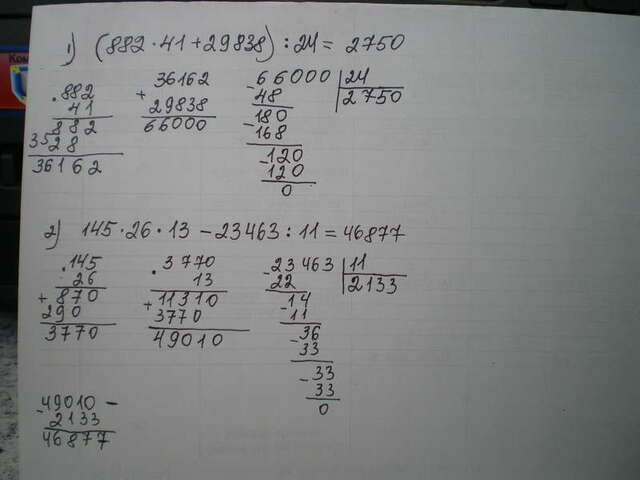 1) (882·41+29838):24=2750
·882
41
882
3528
36162
36162
+29838
66000
-66000 |24
48 2750
180
-168
-120
120
0
2) 145·26·13-23463:11=46877
·145
26
+870
290
3770
·3770
13
+11310
3770
49010
-23463 |11
22 2133
-14
11
-36
33
-33
33
0
-49010-
2133
46877